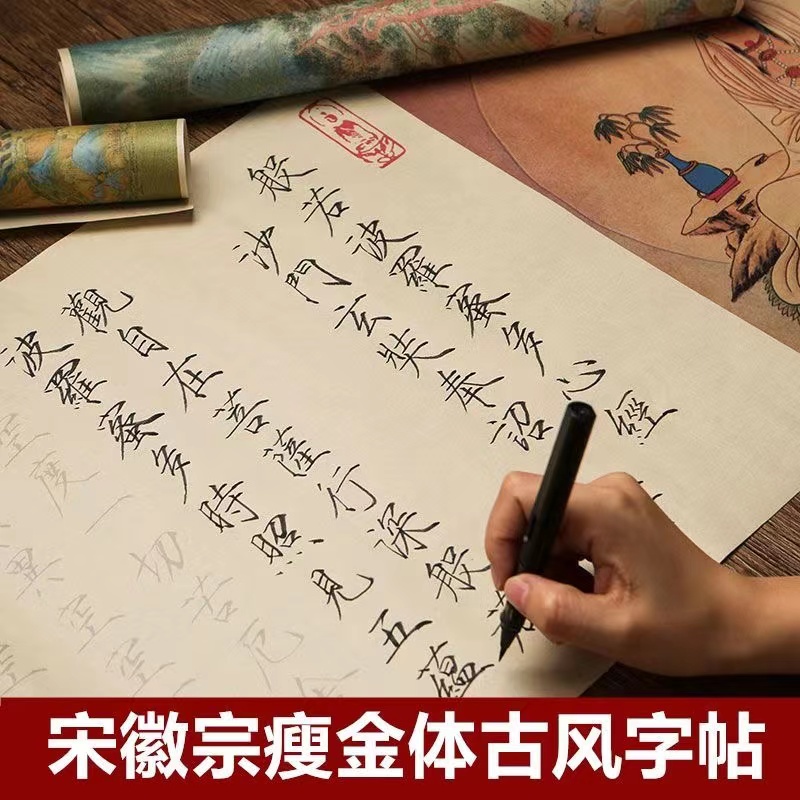 般若波羅蜜多心經
沙門玄奘奉詔
觀自在菩薩行深般若
波羅蜜多時照見五蘊
空度一切苦厄
異空空
宋徽宗瘦金体古风字帖